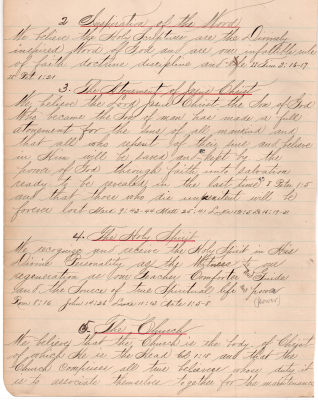 2 Inspiration of the Word
We believe the Holy Scriptures are the Divinely
inspired Word of God and are our infallible rule
of faith doctrine discipline and life II Tim 3:16-17
II Pet. 1:21
3. The Atonement of Jesus Christ
We believe the Lord Jesus Christ the Son of God
Who became the Son of man has made a full
atonement for the sins of all mankind and
that all who repent of they sins and believe
in Him will be saved and "kept by the
power of God through faith unto salvation
ready to be revealed in the last time" I Peter 1:5
and that those who die impenitent will be
forever lost Mark 9:43-44 Matt 25:41
4. The Holy Spirit
We recognize and receive the Holy Spirit in His
Divine Personality as the Witness to our
regeneration as our Teacher Comforter and Guide
and the Source of true Spiritual life and power
(power)
Rom 8:16 John 14:26 Luke 11:13 Acts 1:5-8
5. The Church
We believe that the Church is the body of Christ
of which He is the Head Col 1:18 and that the
Church Comprises all true believers whose duty it
is to associate themselves together for the maintenance